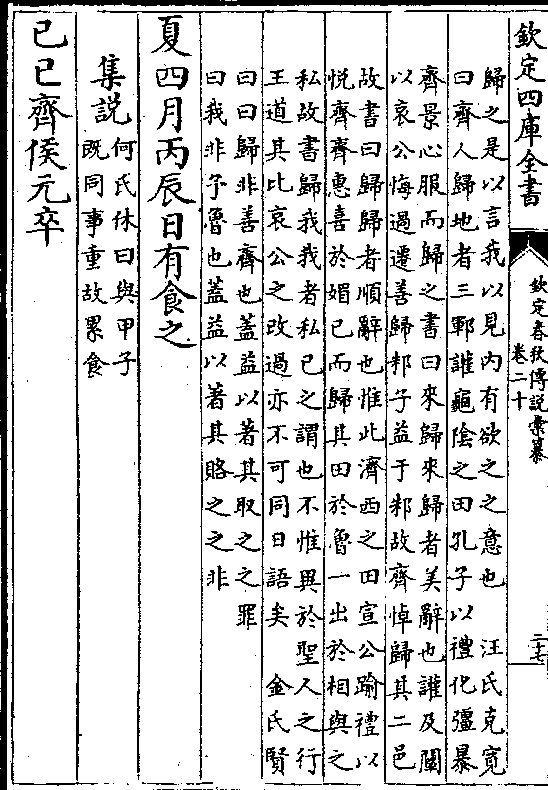 欽定四庫全書
欽定春秋傳說彙纂
卷二十
二十七
歸之是以言我以見内有欲之之意也　汪氏克寬
曰齊人歸地者三鄆讙龜陰之田孔子以禮化彊暴
齊景心服而歸之書曰來歸來歸者美辭也讙及闡
以哀公悔過遷善歸邾子益于邾故齊悼歸其二邑
故書曰歸歸者順辭也惟此濟西之田宣公踰禮以
悦齊齊惠喜於媚已而歸其田於魯一出於相與之
私故書歸我我者私已之謂也不惟異於聖人之行
王道其比哀公之改過亦不可同日語矣　金氏賢
曰曰歸非善齊也蓋益以著其取之之罪
曰我非予魯也蓋益以著其賂之之非
夏四月丙辰日有食之
集說
何氏休曰與甲子
既同事重故累食
己巳齊侯元卒